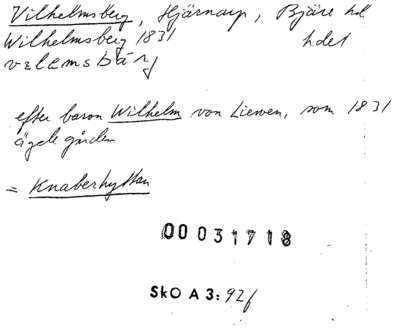 Vilhelmsberg, Hjärnarp, Bjäre hd
Wilhelmsberg 1831 hdet
vɛlemsbarj
efter baron Wilhelm von Liewen, som 1831
ägde gården
= Knaberhyttan
00031718
SkO A 3: 92f